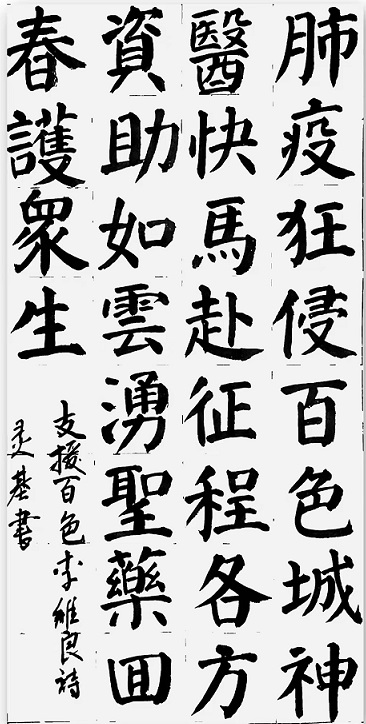 肺疫狂侵百色城神
醫快馬赴征程各方
資助如雲湧聖藥囬
春護衆生
支援百色李維良詩
灵基書